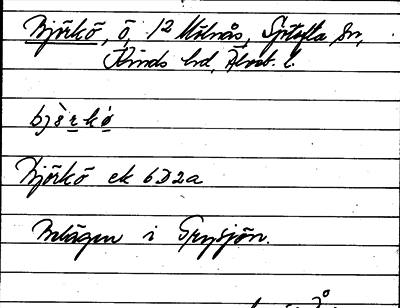 Björkö, ö, 12 Mölnås, Spitofla sn,
Kinds hd, Älvsb. l.
bjö̀rkö
Björkö ek 6D2a
Belägen i Frysjön.